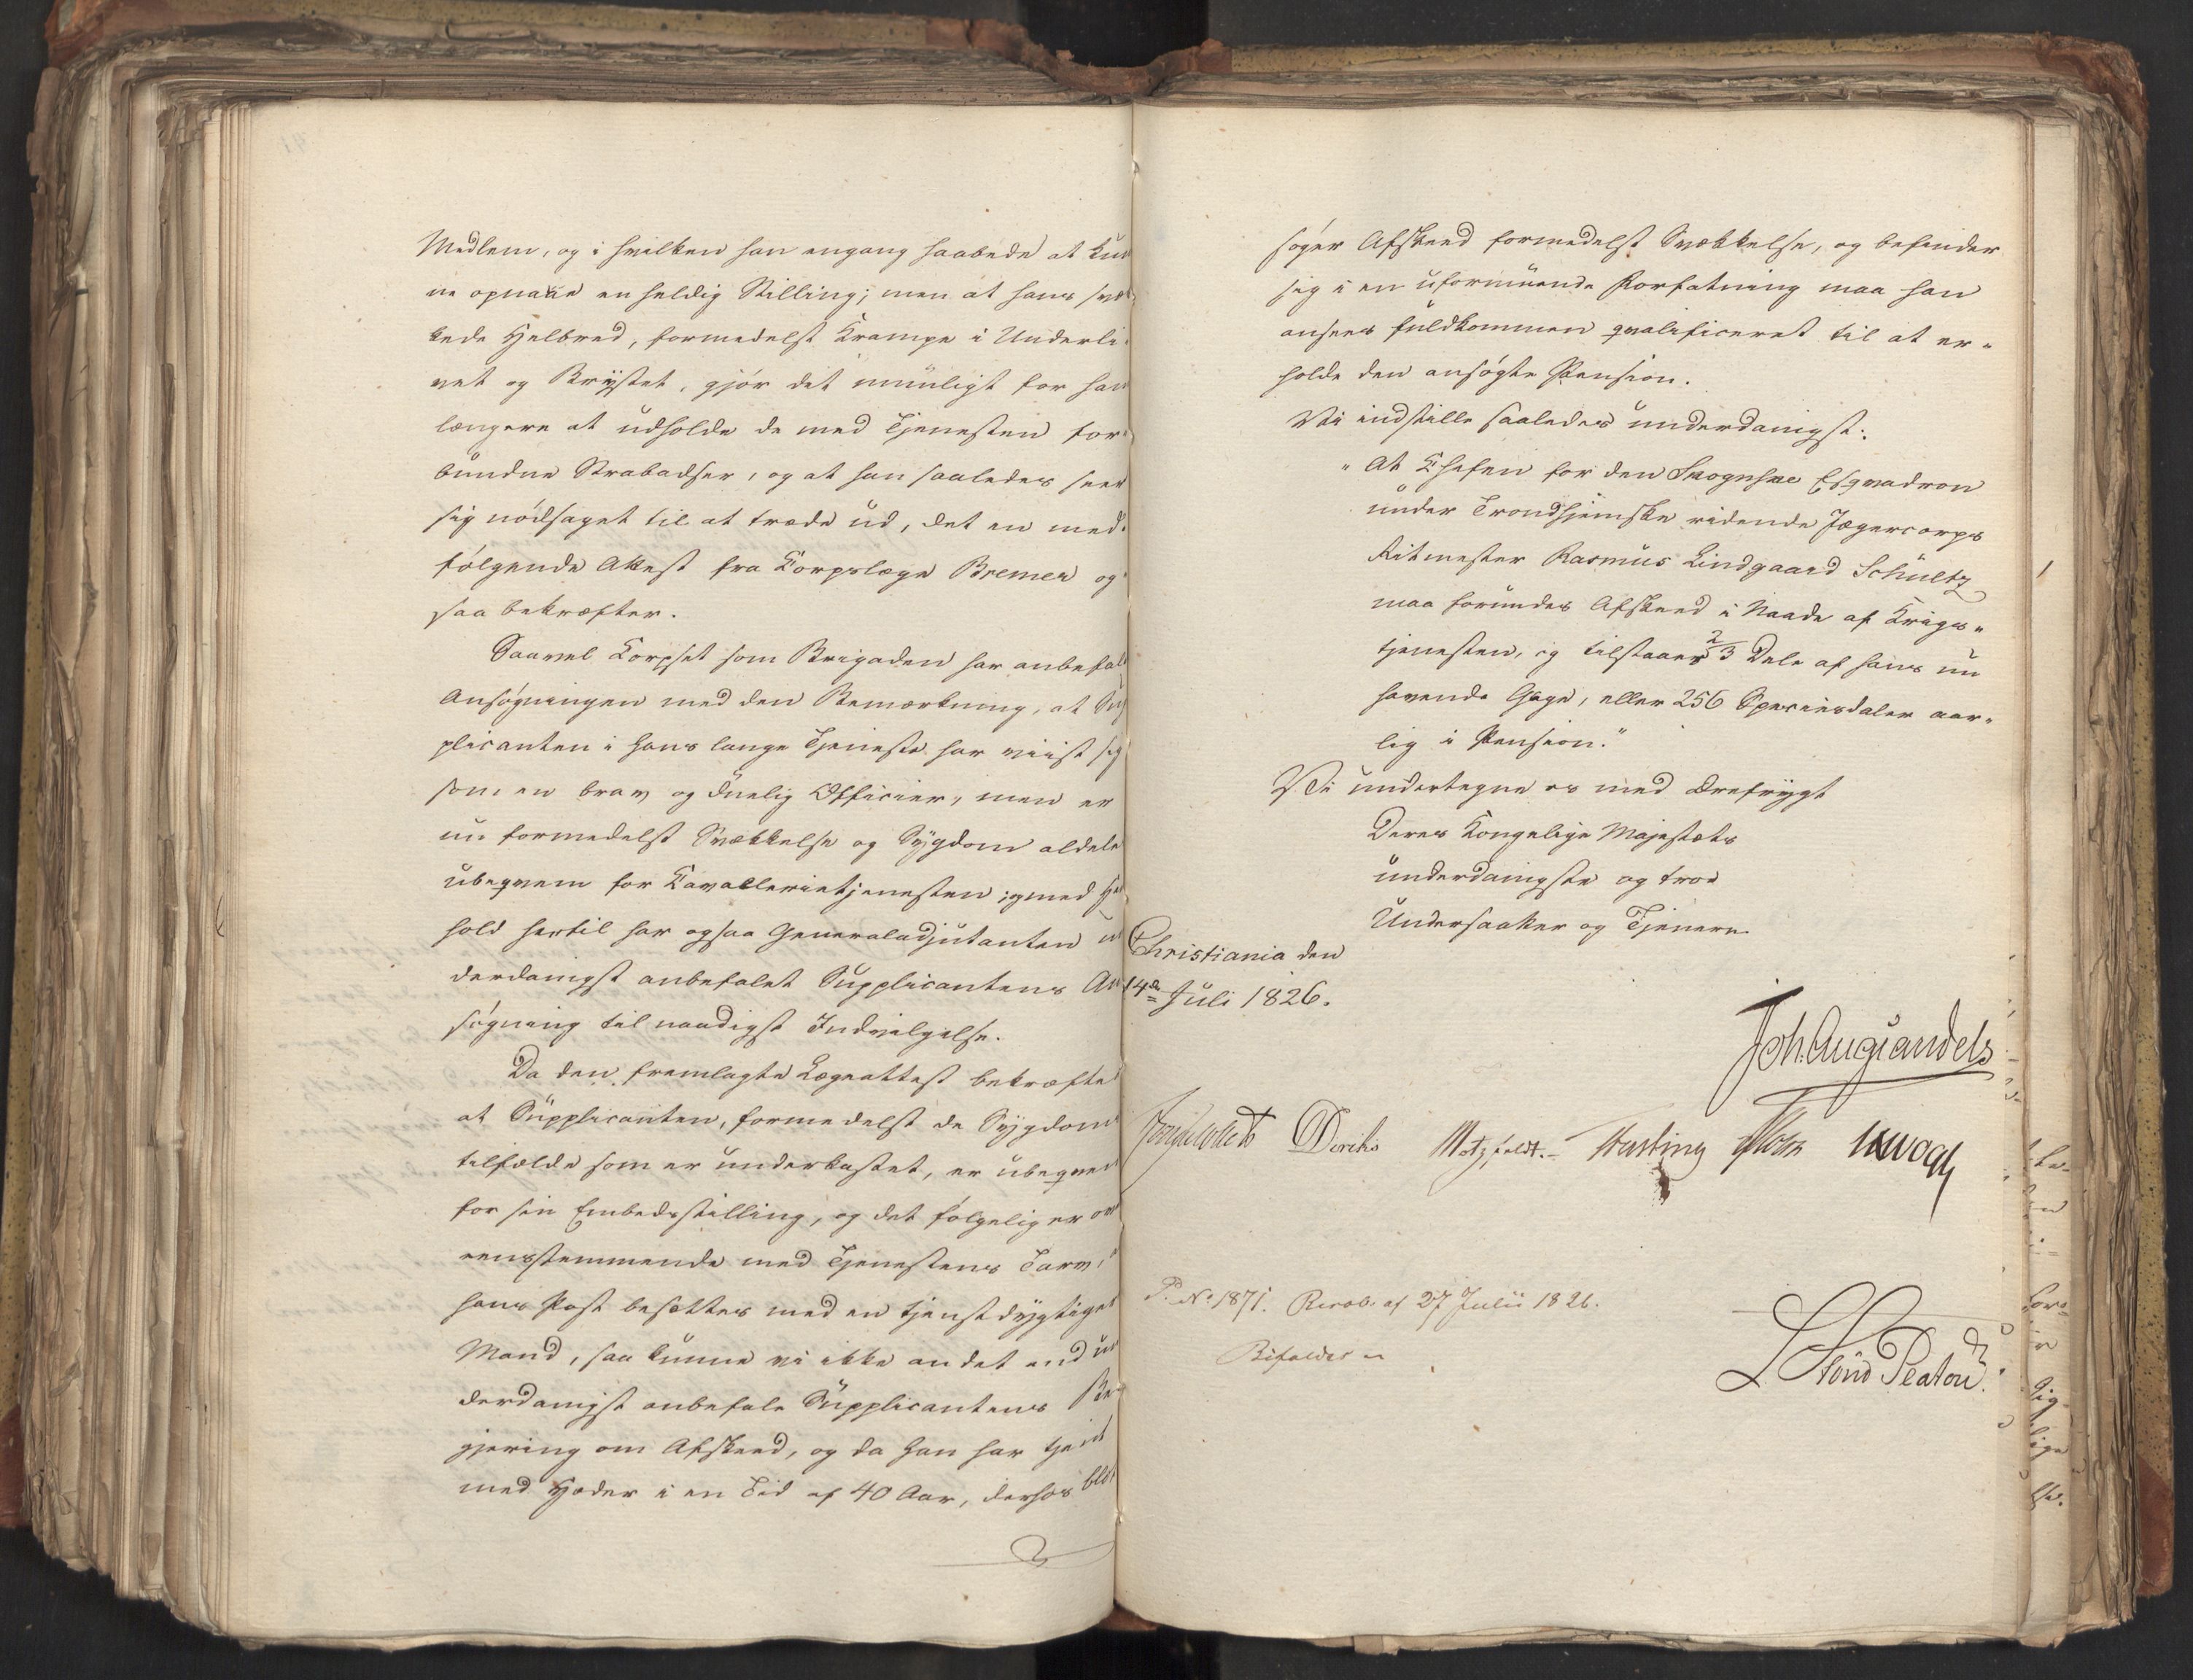 Medlem, og i hvilken han engang haabede at kun
ne opnaae en heldig Stilling; men at hans svæk
kede Helbred, formedelst Krampe i Underli
vet og Brystet, gjør det umüligt for ham
længere at udholde de med Tjenesten for
bundne Strabadser, og at han saaledes seer
sig nødsaget til at træde ud, det en med
følgende Attest fra Corpslæge Bremer og
saa bekræfter.
Saavel Corpset som Brigaden har anbefalt
Ansøgningen med den Bemærkning, at Sup
plicanten i hans lange Tjeneste har viist sig
som en brav og duelig Officier, men er
nu formedelst Svækkelse og Sygdom aldeles
ubeqvem for Cavallerietjenesten; og med Hen
hold hertil har ogsaa Generaladjutanten un
derdanigst anbefalet Supplicantens An
søgning til naadigst Indvilgelse.
Da den fremlagte Lægeattest bekræfter
at Supplicanten, formedelst de Sygdoms
tilfælde som er underkastet, er ubeqvem
for sin Embedsstilling, og det følgelig er ove
rensstemmende med Tjenestens Tarv,
hans Post besættes med en tjenstdygtiger
Mand, saa kunne vi ikke andet end un
derdanigst anbefale Supplicantens Be
gjering om Afskeed, og da han har tjent
med Hæder i en Tid af 40 Aar, derhos blot
søger Afskeed formedelst Svækkelse, og befinder
sig i en uformuende Forfatning maa han
ansees fuldkommen qvalificeret til at er-
holde den ansøgte Pension.
Vi indstille saaledes underdanigst:
"At Chefen for den Skognske Esqvadron
under Trondhjemske ridende Jægercorps
Ritmester Rasmus Lindgaard Schultz
maa forundes Afskeed i Naade af Krigs-
tjenesten, og tilstaaes 2/3 Dele af hans nu
havende Gage, eller 256 Speciesdaler aar-
lig i Pension."
Vi undertegne os med Ærefrygt
Deres Kongelige Majestæts
underdanigste og troe
Undersaatter og Tjenere.
Christiania den
14de Juli 1826.
Joh. Aug. Sandels
Diriks Motzfeldt. Fasting Holst
P. No. 1871. Resol. af 27 Julii 1826.
Bifaldes